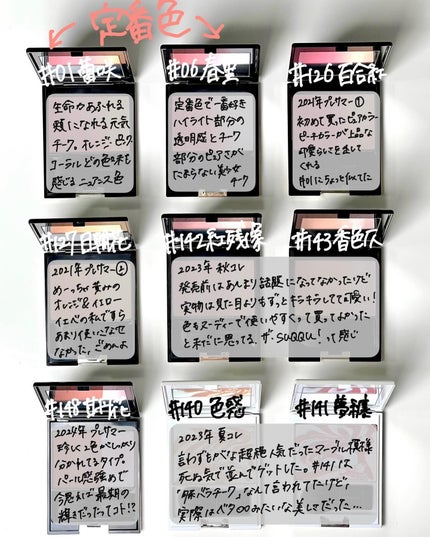 定番色
#01 蕾咲
#06 春菫
#126 百合紅
生命力あふれる
頬になれる元気
チーク。オレンジ、ピンク
コーラル どの色味も
感じるニュアンス色
定番色で一番好き
ハイライト部分の
透明感とチーク
部分のピュアさが
たまらない美少女
チーク
2021年プレサマー①
初めて買ったピュアカラー
ピーチカラーが上品な
可愛らしさを出して
くれる
#01にちょっと似てた
#127
#142 紅残像
#143 香色仄
2021年プレサマー②
めーっちゃ黄みの
オレンジ&イエロー
イエベの私ですら
あまり使いこなせ
なかった、ごめんよ
2023年 秋コレ
発売前はあんまり話題になってなかったけど
実物は見た目よりもずっとキラキラしてて可愛い!
色もヌーディーで使いやすくって買ってよかった
と未だに思ってる。ザ・SUQQU!って感じ
#148
#140 色窓
#141 夢穂
2024年 プレサマー
珍しく2色がしっかり
分かれてるタイプ。
パール感強めで
今思えば最期の
輝きだったってコト!?
2023年 夏コレ
言わずもがな超絶人気だったマーブル模様
死ぬ気で並んでゲットした。#141は
「豚バラチーク」なんて言われてたけど、
実際はベタ〇〇みたいな美しさだった…